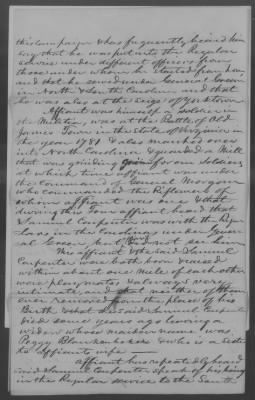 this Campaign & has frequently heard him
say that he was put into the Regular
service under different officers from
those under whom he started from home
and that he served under General Green
in North & South Carolina and that
he was also at the siege of York town
Affiant was himself a soldier in
the Militia, was at the Battle of Old
James Town in the State of Virginia in
the year 1781 & also marched over
into North Carolina & guarded a Mill
that was grinding for our Soldiers
at which time affiant was under
the Command of General Morgan
who Commanded the Riflemen of
whom affiant was one & that
during this Tour affiant heard that
Samuel Carpenter was with the Reg-
ulars in the Carolinas under Gener
al Green, but did not see him
This affiant & the said Samuel
Carpenter were both born & raised
within about one mile of each other
was play mates & always very
intimate, and that neither of them
ever removed from the place of his
Birth & that the said Samuel Carpenter
died some years ago leaving a
widow whose maiden name was
Peggy Blankenbeker & who is a sister
to affiants wife
affiant has repeatedly heard
said Samuel Carpenter speak of his being
in the Regular service to the South